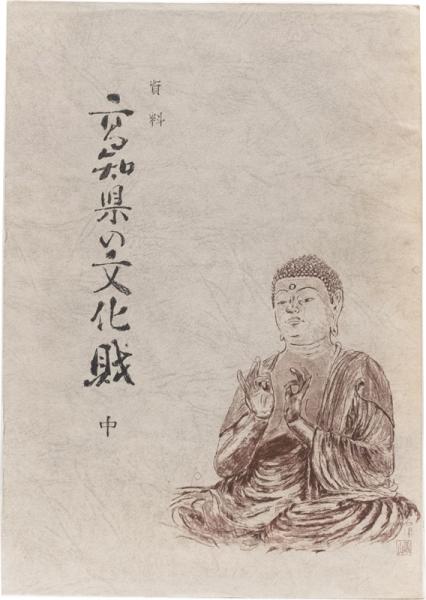 資料
高知県の文化財
中